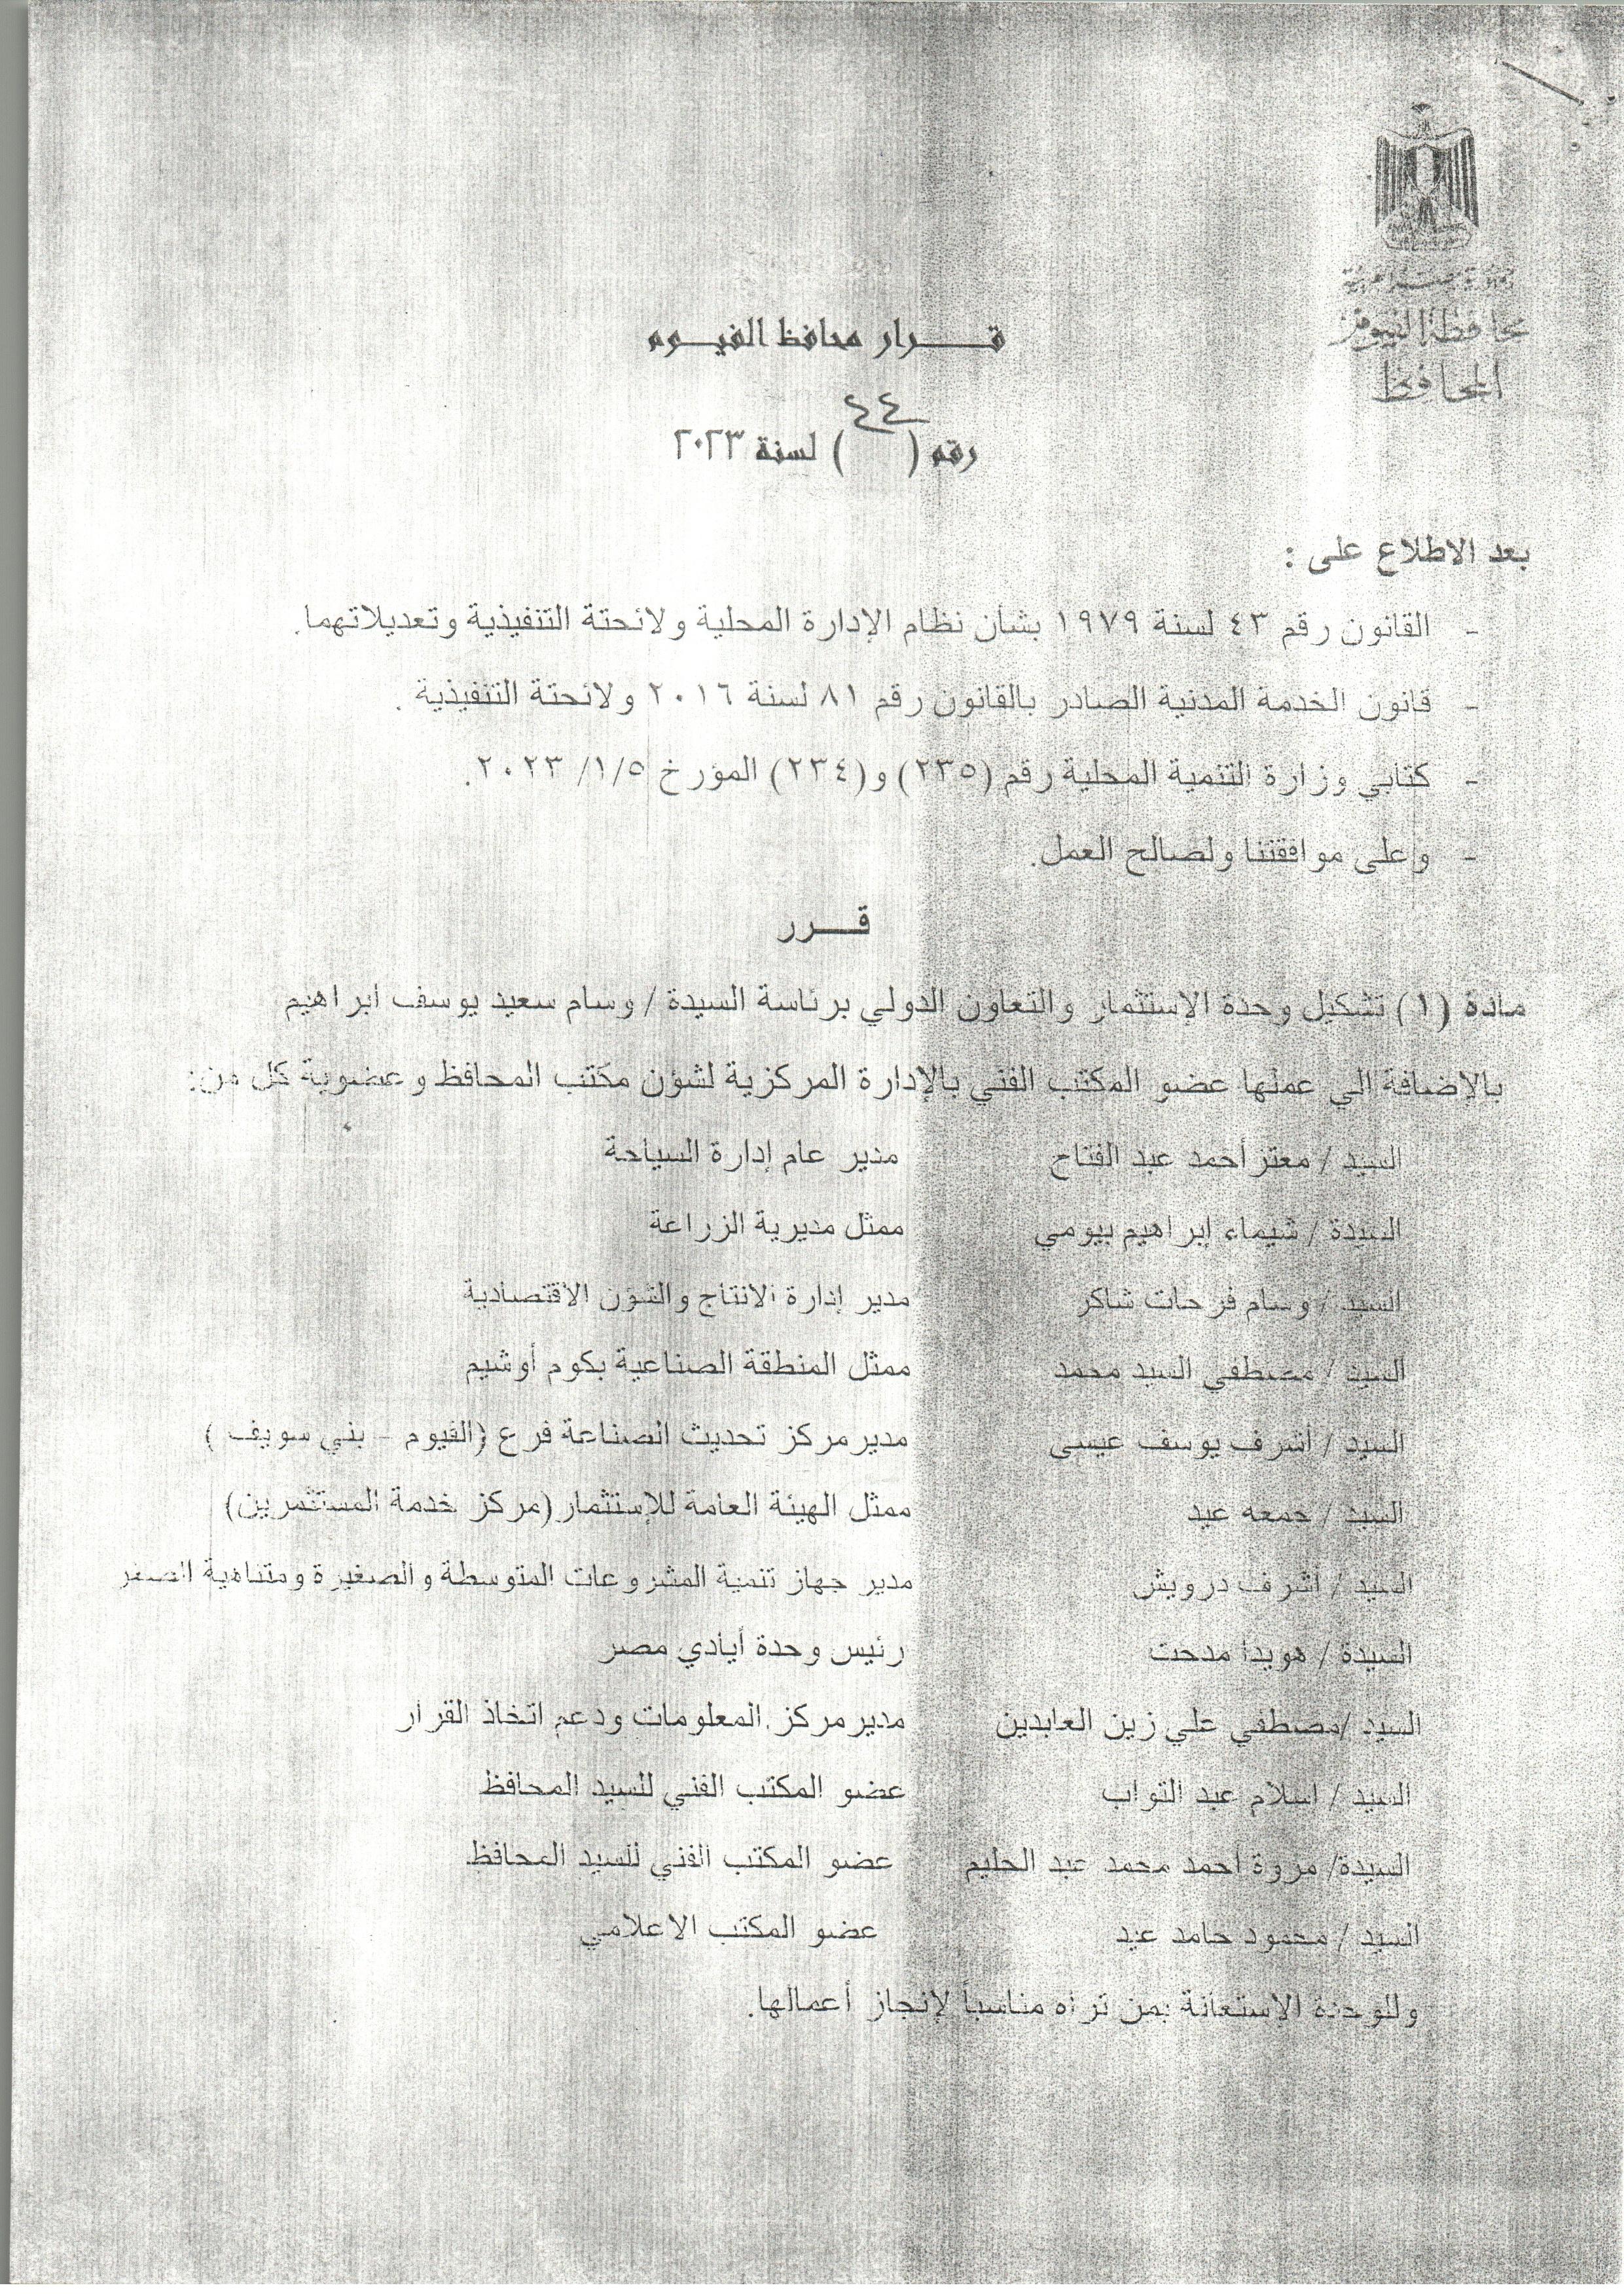 جمهورية مصر العربية
محافظة الفيوم
المحافظ
قـــرار محافظ الفيـوم
رقم ( ٤٤ ) لسنة ٢٠٢٣
بعد الاطلاع على :
- القانون رقم ٤٣ لسنة ١٩٧٩ بشأن نظام الإدارة المحلية ولائحتة التنفيذية وتعديلاتهما.
- قانون الخدمة المدنية الصادر بالقانون رقم ٨١ لسنة ٢٠١٦ ولائحتة التنفيذية .
- كتابي وزارة التنمية المحلية رقم (٢٣٥) و(٢٣٤) المؤرخ ١/٥/ ٢٠٢٣.
- وعلى موافقتنا ولصالح العمل.
قـــرر
مادة (١) تشكيل وحدة الإستثمار والتعاون الدولي برئاسة السيدة / وسام سعيد يوسف ابراهيم
بالإضافة الي عملها عضو المكتب الفني بالإدارة المركزية لشؤن مكتب المحافظ وعضوية كل من:
السيد / معتز أحمد عبد الفتاح مدير عام إدارة السياحة
السيدة / شيماء إبراهيم بيومي ممثل مديرية الزراعة
السيد / وسام فرحات شاكر مدير إدارة الانتاج والشؤن الاقتصادية
السيد / مصطفي السيد محمد ممثل المنطقة الصناعية بكوم أوشيم
السيد / أشرف يوسف عيسى مدير مركز تحديث الصناعة فرع (الفيوم - بني سويف )
السيد / جمعه عيد ممثل الهيئة العامة للإستثمار (مركز خدمة المستثمرين)
السيد / أشرف درويش مدير جهاز تنمية المشروعات المتوسطة والصغيرة ومتناهية الصغر
السيدة / هويدا مدحت رئيس وحدة أيادي مصر
السيد /مصطفي علي زين العابدين مدير مركز المعلومات ودعم اتخاذ القرار
السيد / اسلام عبد التواب عضو المكتب الفني للسيد المحافظ
السيدة/ مروة أحمد محمد عبد الحليم عضو المكتب الفني للسيد المحافظ
السيد / محمود حامد عيد عضو المكتب الاعلامي
وللوحدة الاستعانة بمن تراه مناسباً لإنجاز أعمالها.